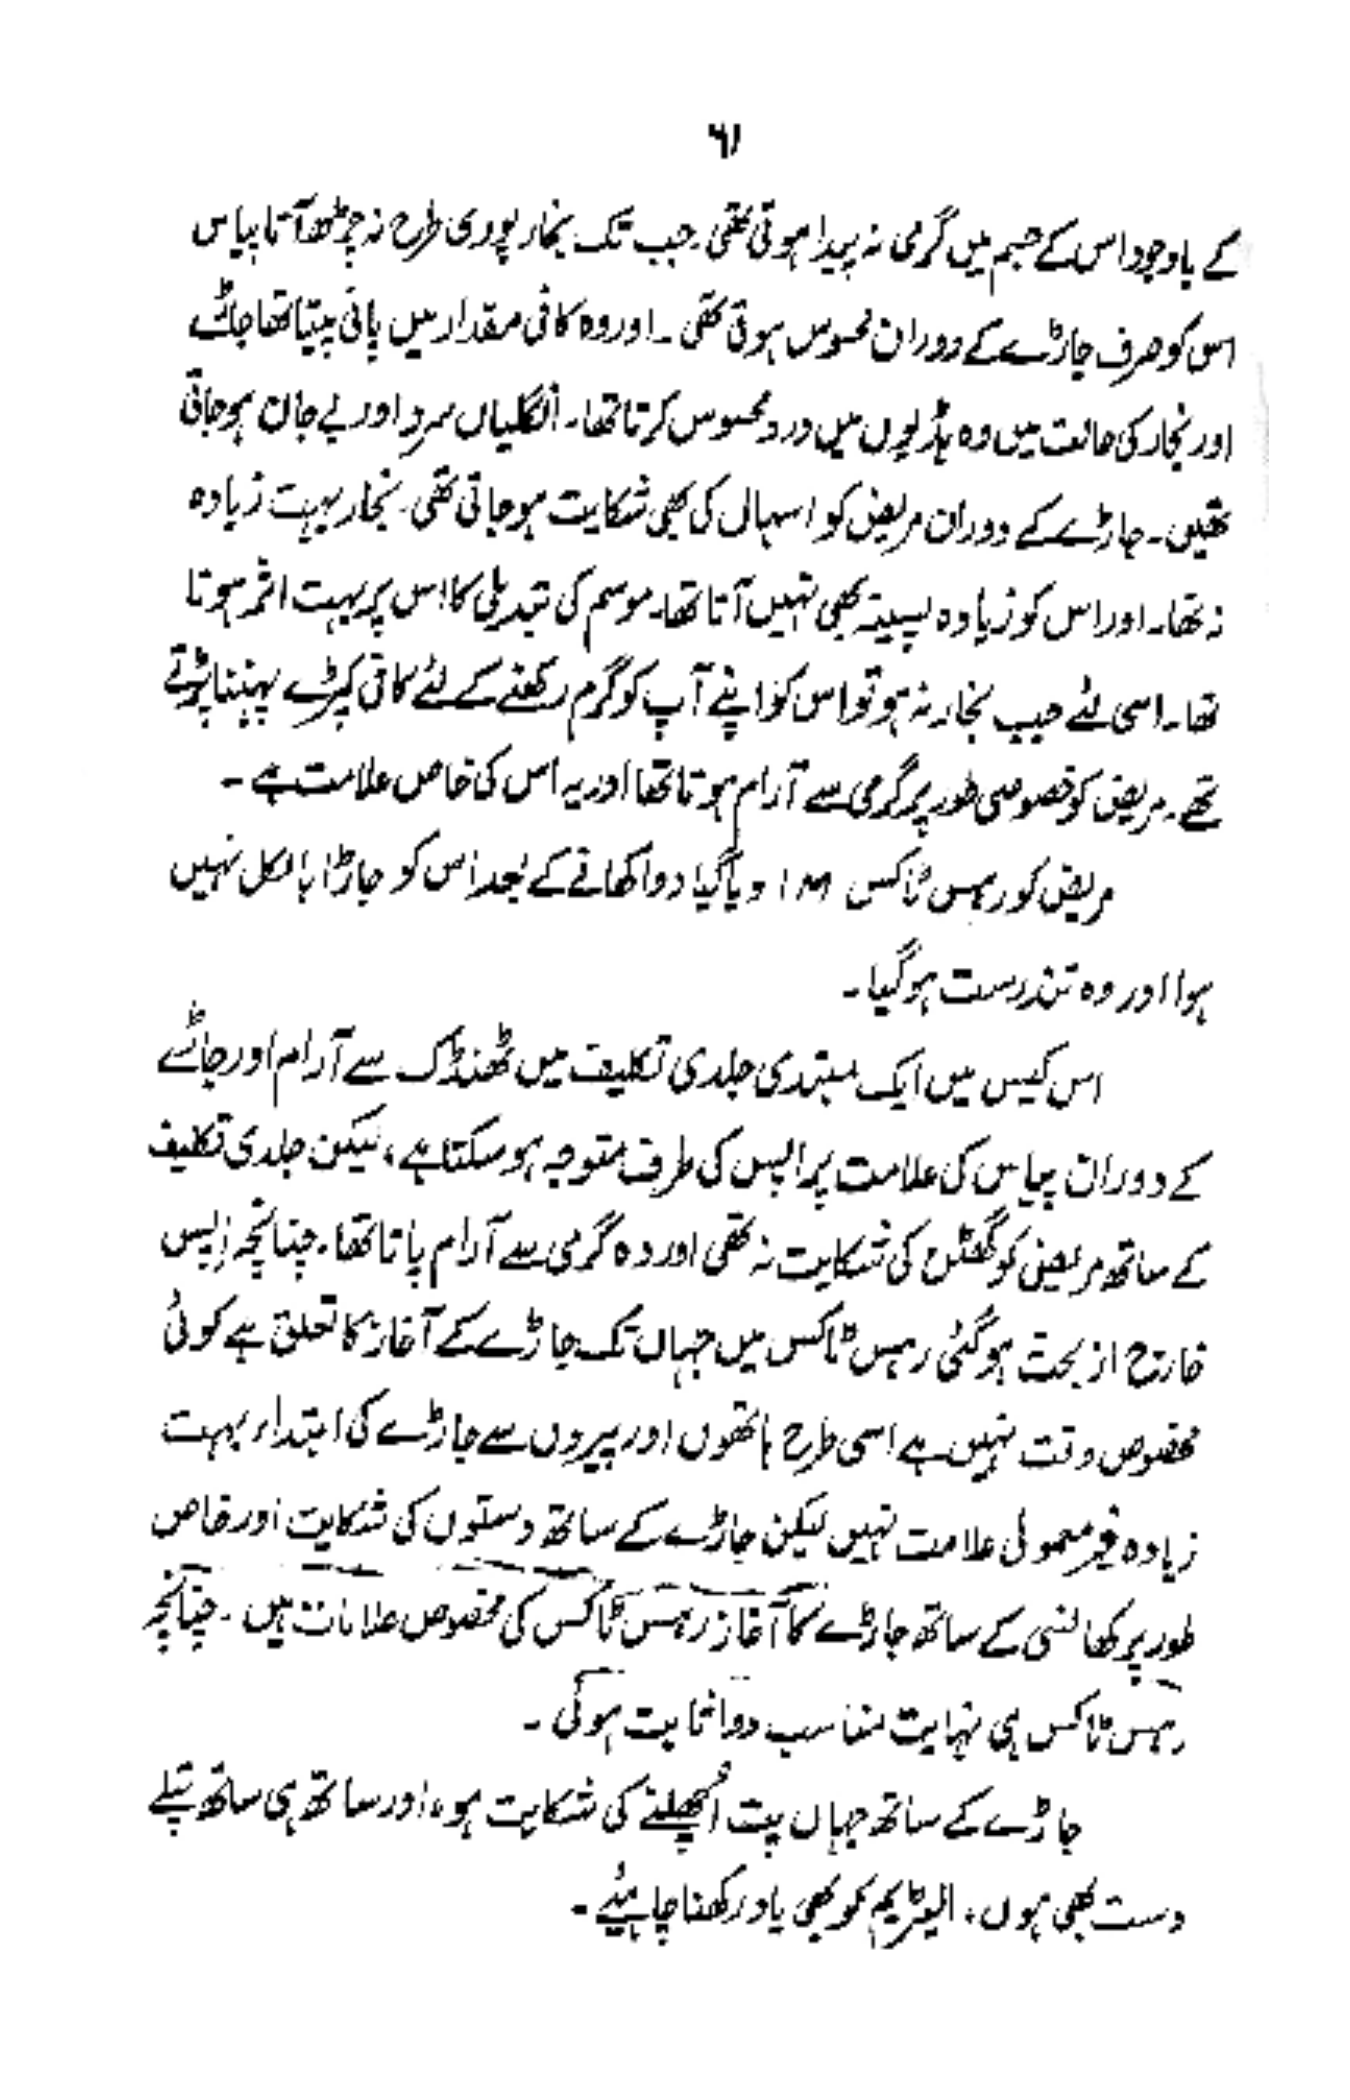 ۶۱
کے باوجود اس کے جسم میں گرمی نہ پیدا ہوتی تھی۔ جب تک بخار پوری طرح نہ چڑھ آتا پیاس
اس کو صرف جاڑے کے دوران محسوس ہوتی تھی۔ اور وہ کافی مقدار میں پانی پیتا تھا جاڑے
اور بخار کی حالت میں وہ ہڈیوں میں درد محسوس کرتا تھا۔ انگلیاں سرد اور بے جان ہو جاتی
تھیں۔ جاڑے کے دوران مریض کو اسہال کی بھی شکایت ہو جاتی تھی۔ بخار بہت زیادہ
نہ تھا۔ اور اس کو زیادہ پسینہ بھی نہیں آتا تھا۔ موسم کی تبدیلی کا اس پر بہت اثر ہوتا
تھا۔ اسی لئے جب بخار نہ ہو تو اس کو اپنے آپ کو گرم رکھنے کے لئے کافی کپڑے پہننا پڑتے
تھے۔ مریض کو خصوصی طور پر گرمی سے آرام ہوتا تھا اور یہ اس کی خاص علامت ہے۔
مریض کو رہس ٹاکس 1M دیا گیا دوا کھانے کے بعد اس کو جاڑا بالکل نہیں
ہوا اور وہ تندرست ہو گیا۔
اس کیس میں ایک مبتدی جلدی تکلیف میں ٹھنڈک سے آرام اور جاڑے
کے دوران پیاس کی علامت پر اپس کی طرف متوجہ ہو سکتا ہے، لیکن جلدی تکلیف
کے ساتھ مریض کو گھٹن کی شکایت نہ تھی اور وہ گرمی سے آرام پاتا تھا۔ چنانچہ اپس
خارج از بحث ہو گئی رہس ٹاکس میں جہاں تک جاڑے کے آغاز کا تعلق ہے کوئی
مخصوص وقت نہیں ہے اسی طرح ہاتھوں اور پیروں سے جاڑے کی ابتداء بہت
زیادہ غیر معمولی علامت نہیں لیکن جاڑے کے ساتھ دستوں کی شکایت اور خاص
طور پر کھانسی کے ساتھ جاڑے کا آغاز رہس ٹاکس کی مخصوص علامات ہیں۔ چنانچہ
رہس ٹاکس ہی نہایت مناسب دوا ثابت ہوگی۔
جاڑے کے ساتھ جہاں پت اُچھلنے کی شکایت ہو، اور ساتھ ہی ساتھ پتلے
دست بھی ہوں، الیٹریم کو بھی یاد رکھنا چاہیئے۔